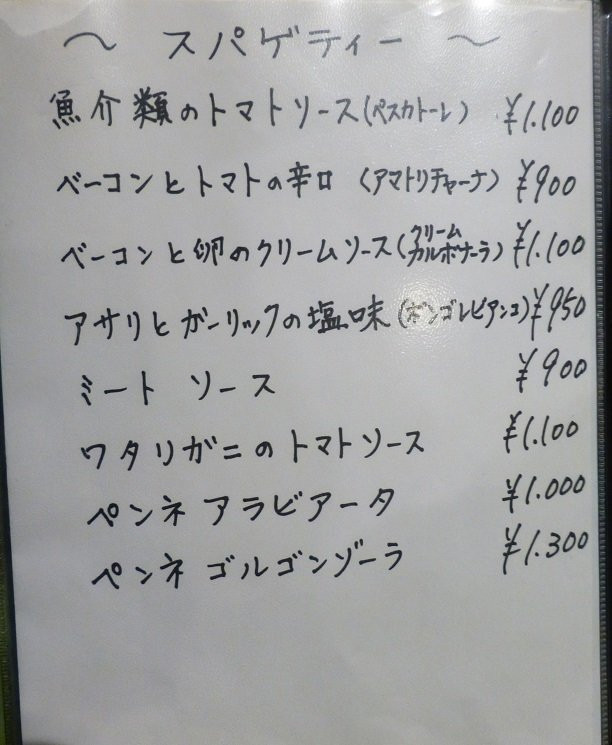 ～ スパゲティー ～
魚介類のトマトソース(ペスカトーレ) ¥1.100
ベーコンとトマトの辛口 (アマトリチャーナ) ¥900
ベーコンと卵のクリームソース(クリームカルボナーラ) ¥1.100
アサリとガーリックの塩味(ボンゴレビアンコ) ¥950
ミート ソース ¥900
ワタリガニのトマトソース ¥1.100
ペンネ アラビアータ ¥1.000
ペンネ ゴルゴンゾーラ ¥1.300